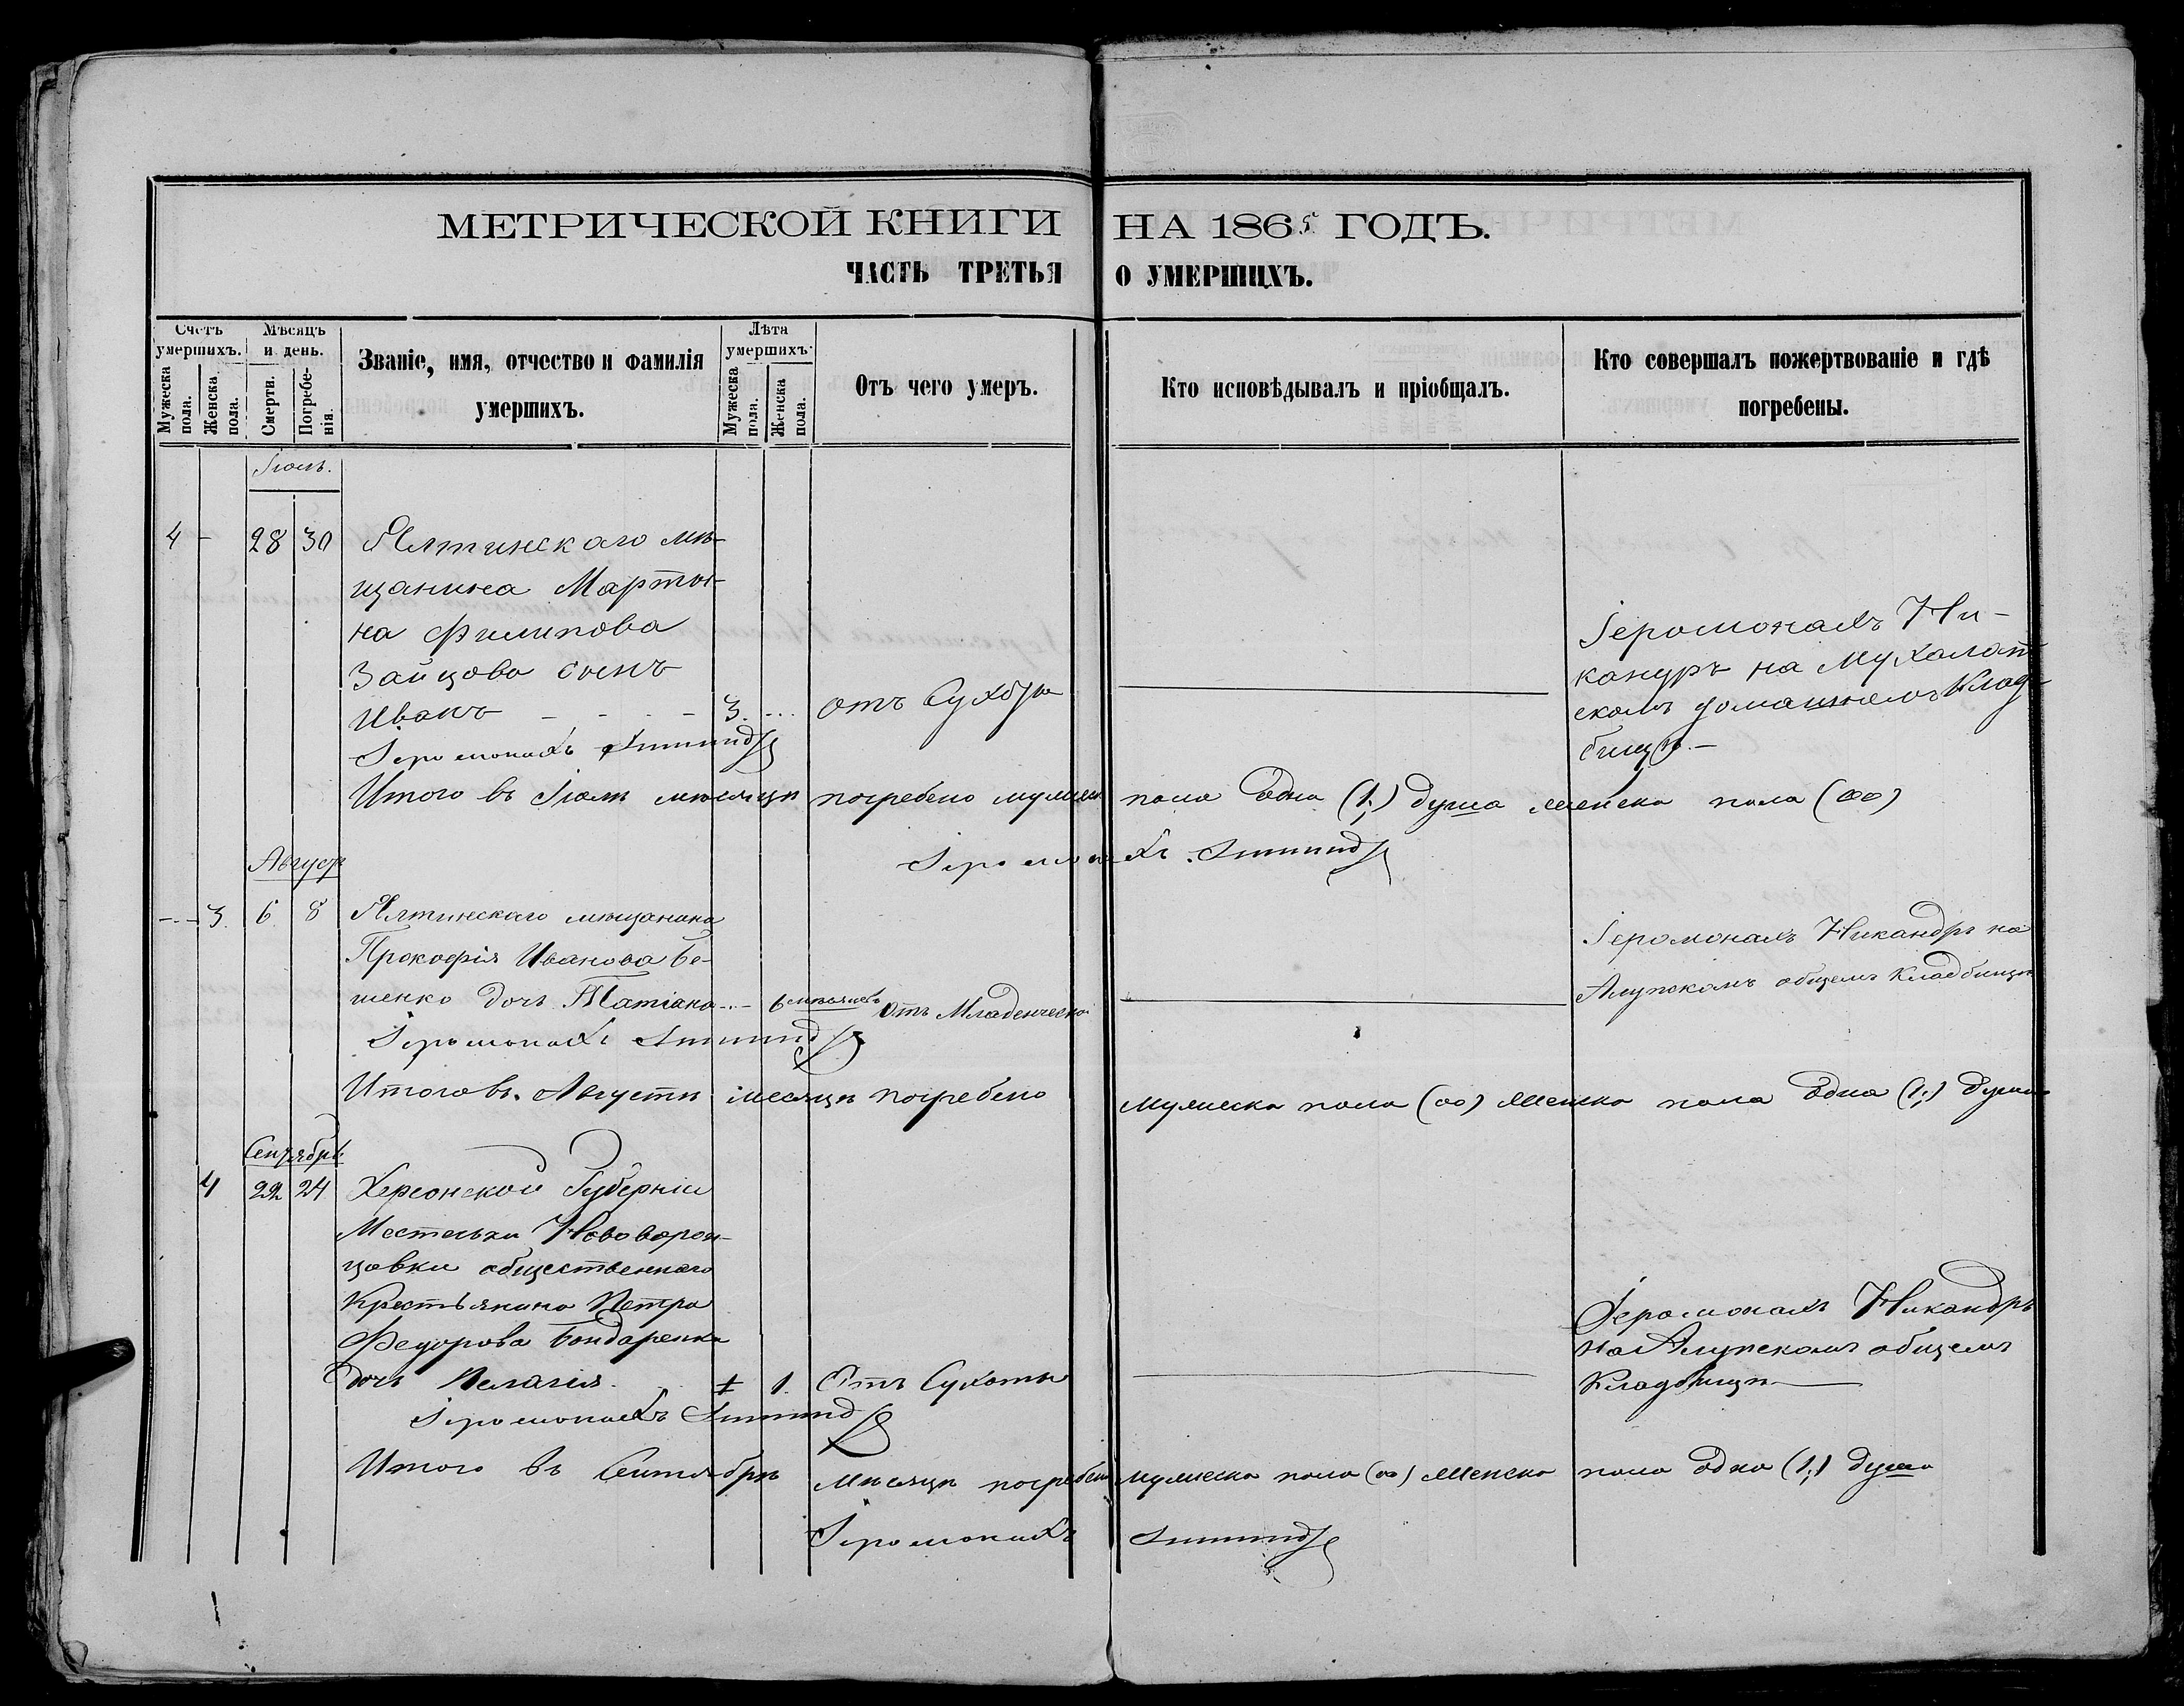 МЕТРИЧЕСКОЙ КНИГИ НА 1865 ГОДЪ.
ЧАСТЬ ТРЕТЬЯ О УМЕРШИХЪ.
Счетъ умершихъ.
Мужеска пола.
Женска пола.
Мѣсяцъ и день.
Смерти.
Погребенія.
Званіе, имя, отчество и фамилія
умершихъ.
Лѣта умершихъ.
Мужеска пола.
Женска пола.
Отъ чего умеръ.
Кто исповѣдывалъ и пріобщалъ.
Кто совершалъ пожертвованіе и гдѣ
погребены.
Іюль.
4 - 28 30 Ялтинскаго мѣ-
щанина Марты-
на Филипова
Зайцова сынъ
Иванъ - - - - 3. - ... отъ Сухоты
Іеромонахъ Ни-
кандръ на Мухалат
скомъ домашнемъ Клад-
бищѣ. -
Іеромонахъ
Итого въ Іюлѣ мѣсяцѣ погребено мужеска пола одна (1;) душа женска пола (00)
Іеромонахъ
Август
- . - 3. 6 8 Ялтинскаго мѣщанина
Прокофія Иванова Бе-
шенко дочь Татіана - .. - 6 мѣсяцевъ Отъ Младенческой
Іеромонахъ Никандръ на
Алупскомъ общемъ Кладбищѣ
Іеромонахъ
Итого въ Августѣ месяцѣ погребено мужеска пола (00) женска пола одна (1;) душа
Сентябрь
4 22 24 Херсонской Губерніи
Местечка Нововорон-
цовки общественнаго
Крестьянина Петра
Федорова Бондаренка
дочь Пелагія. 1. Отъ Сухоты
Іеромонахъ Никандръ
на Алупскомъ общемъ
Кладбищѣ
Іеромонахъ
Итого въ Сентябрѣ Мѣсяцѣ погребено мужеска пола (00) женска пола одна (1;) душа
Іеромонахъ